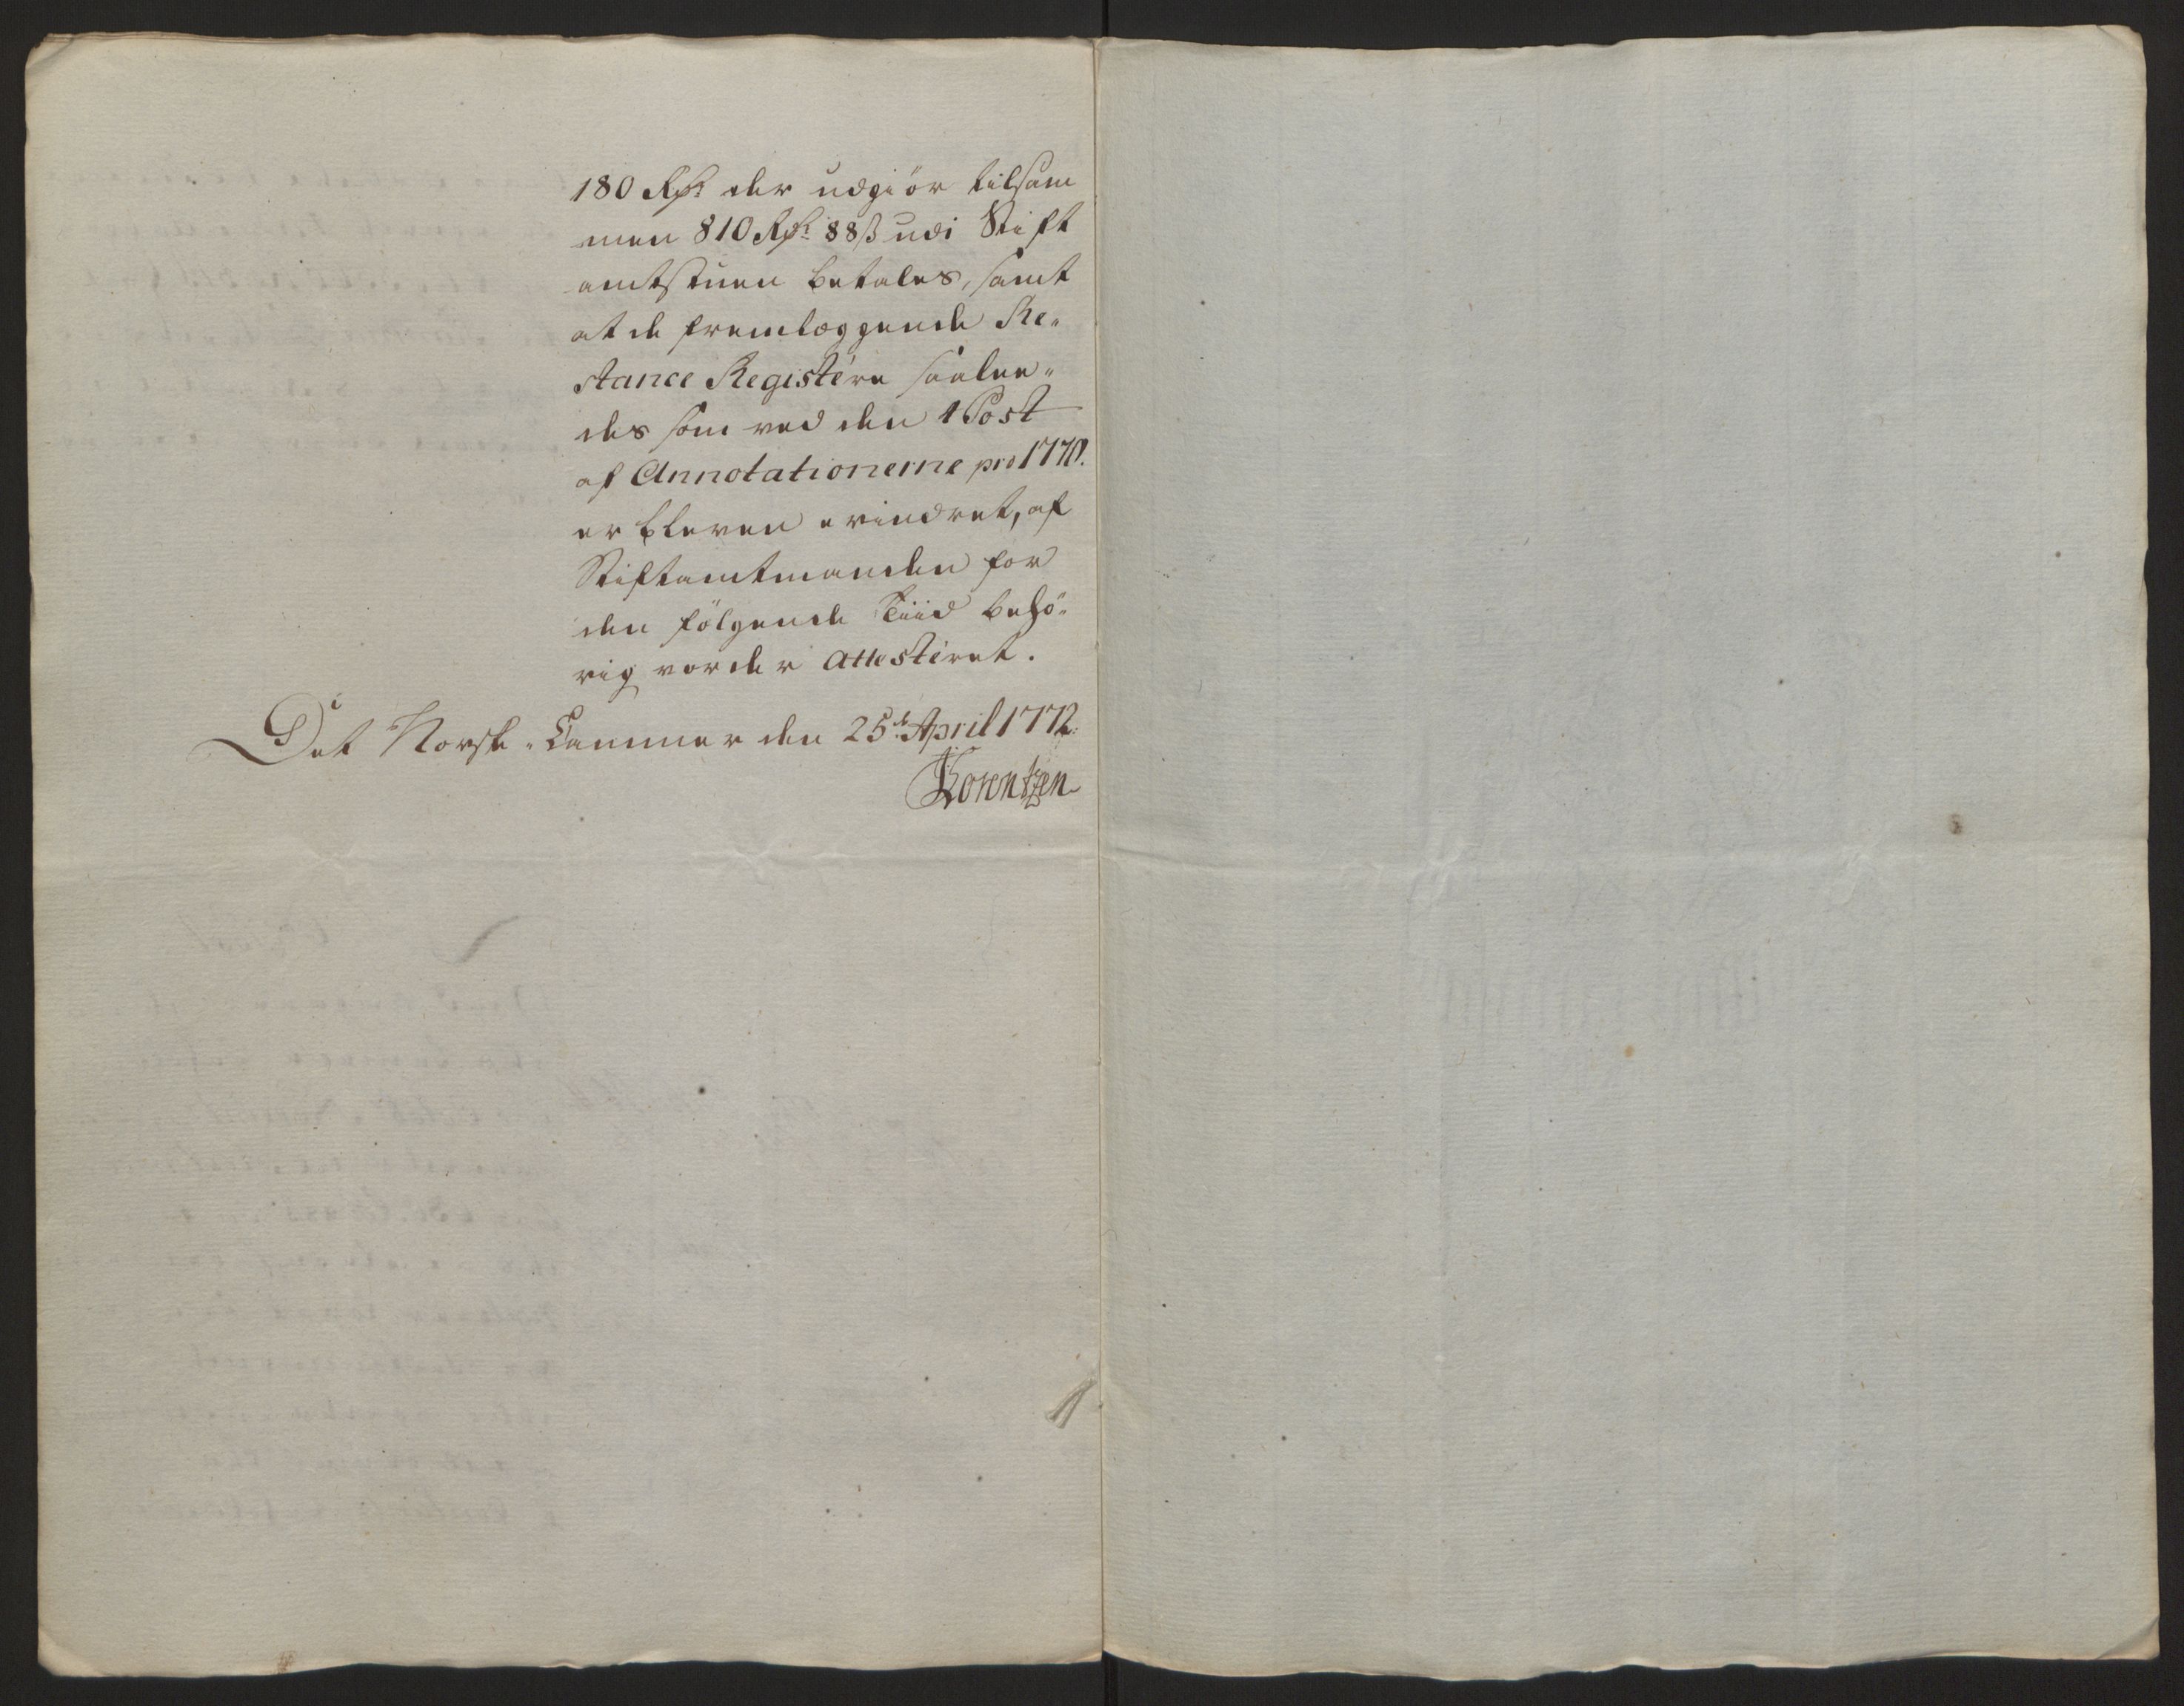 180 Rdr der udgiör tilsam
men 810 Rdr 88 ß udi Stift
amtstuen betales, samt
at de fremlæggende Re„
stance Registére saalee„
des som ved den 1 Post
af Annotationerne pro 1770.
er bleven erindret, af
Stiftamtmanden for
den fölgende Tiid behö„
rig vorder Attestéret.
Det Norske Cammer den 25de April 1772.
Lorentzen